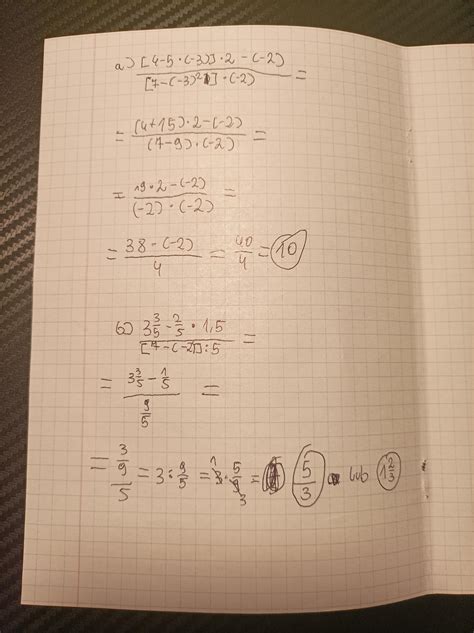 a) \frac{[4-5·(-3)]·2-(-2)}{[7-(-3)²]·(-2)} =
= \frac{(4+15)·2-(-2)}{(7-9)·(-2)} =
= \frac{19·2-(-2)}{(-2)·(-2)} =
= \frac{38-(-2)}{4} = \frac{40}{4} = 10
b) \frac{3\frac{3}{5}-\frac{2}{5}·1,5}{[7-(-2)]:5} =
= \frac{3\frac{3}{5}-\frac{1}{5}}{\frac{9}{5}} =
= \frac{3}{\frac{9}{5}} = 3 : \frac{9}{5} = 3 · \frac{5}{9} = \frac{5}{3} lub 1\frac{2}{3}